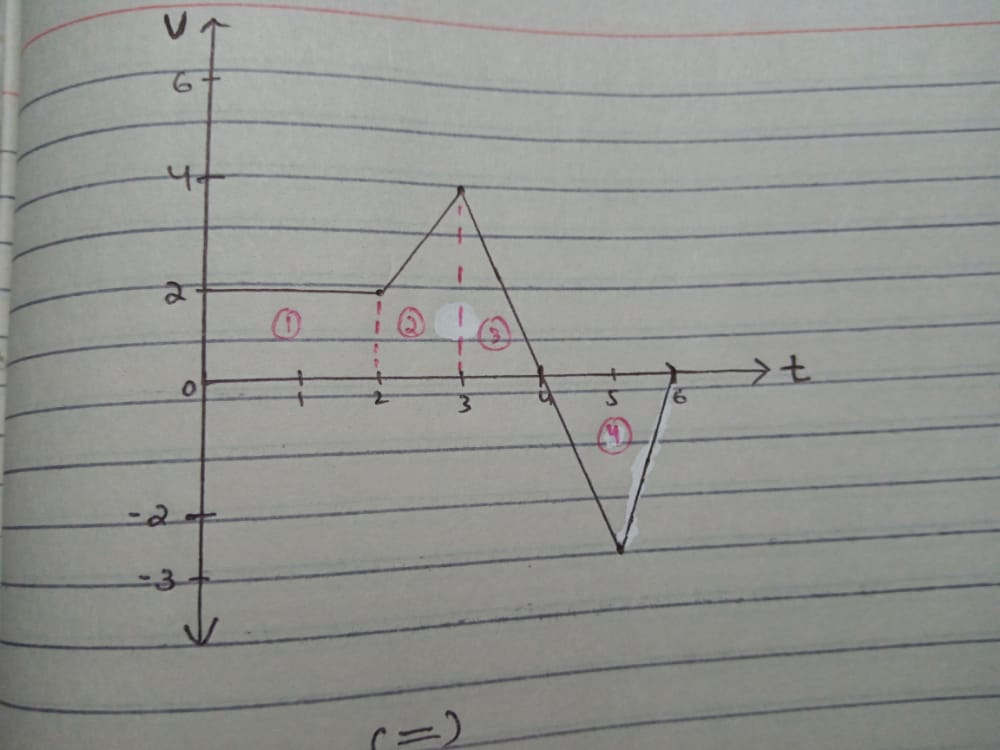 V
6
4
2
① ② ③
0 1 2 3 4 5 6 t
④
-2
-3
(=)